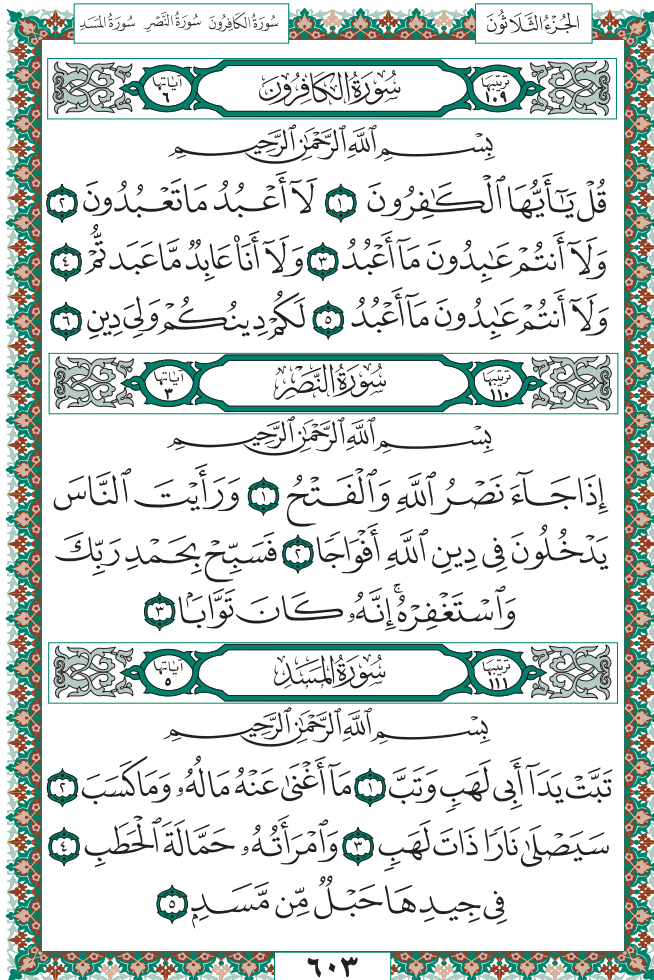 الجُزْءُ الثَّلَاثُونَ سُورَةُ الكَافِرُونَ سُورَةُ النَّصْرِ سُورَةُ المَسَدِ
تَرْتِيبُهَا ١٠٩ سُورَةُ الكَافِرُونَ آيَاتُهَا ٦
بِسْمِ ٱللَّهِ ٱلرَّحْمَٰنِ ٱلرَّحِيمِ
قُلْ يَٰٓأَيُّهَا ٱلْكَٰفِرُونَ ١ لَآ أَعْبُدُ مَا تَعْبُدُونَ ٢
وَلَآ أَنتُمْ عَٰبِدُونَ مَآ أَعْبُدُ ٣ وَلَآ أَنَا۠ عَابِدٌ مَّا عَبَدتُّمْ ٤
وَلَآ أَنتُمْ عَٰبِدُونَ مَآ أَعْبُدُ ٥ لَكُمْ دِينُكُمْ وَلِىَ دِينِ ٦
تَرْتِيبُهَا ١١٠ سُورَةُ النَّصْرِ آيَاتُهَا ٣
بِسْمِ ٱللَّهِ ٱلرَّحْمَٰنِ ٱلرَّحِيمِ
إِذَا جَآءَ نَصْرُ ٱللَّهِ وَٱلْفَتْحُ ١ وَرَأَيْتَ ٱلنَّاسَ
يَدْخُلُونَ فِى دِينِ ٱللَّهِ أَفْوَاجًا ٢ فَسَبِّحْ بِحَمْدِ رَبِّكَ
وَٱسْتَغْفِرْهُ ۚ إِنَّهُۥ كَانَ تَوَّابًۢا ٣
تَرْتِيبُهَا ١١١ سُورَةُ المَسَدِ آيَاتُهَا ٥
بِسْمِ ٱللَّهِ ٱلرَّحْمَٰنِ ٱلرَّحِيمِ
تَبَّتْ يَدَآ أَبِى لَهَبٍ وَتَبَّ ١ مَآ أَغْنَىٰ عَنْهُ مَالُهُۥ وَمَا كَسَبَ ٢
سَيَصْلَىٰ نَارًا ذَاتَ لَهَبٍ ٣ وَٱمْرَأَتُهُۥ حَمَّالَةَ ٱلْحَطَبِ ٤
فِى جِيدِهَا حَبْلٌ مِّن مَّسَدٍۭ ٥
٦٠٣